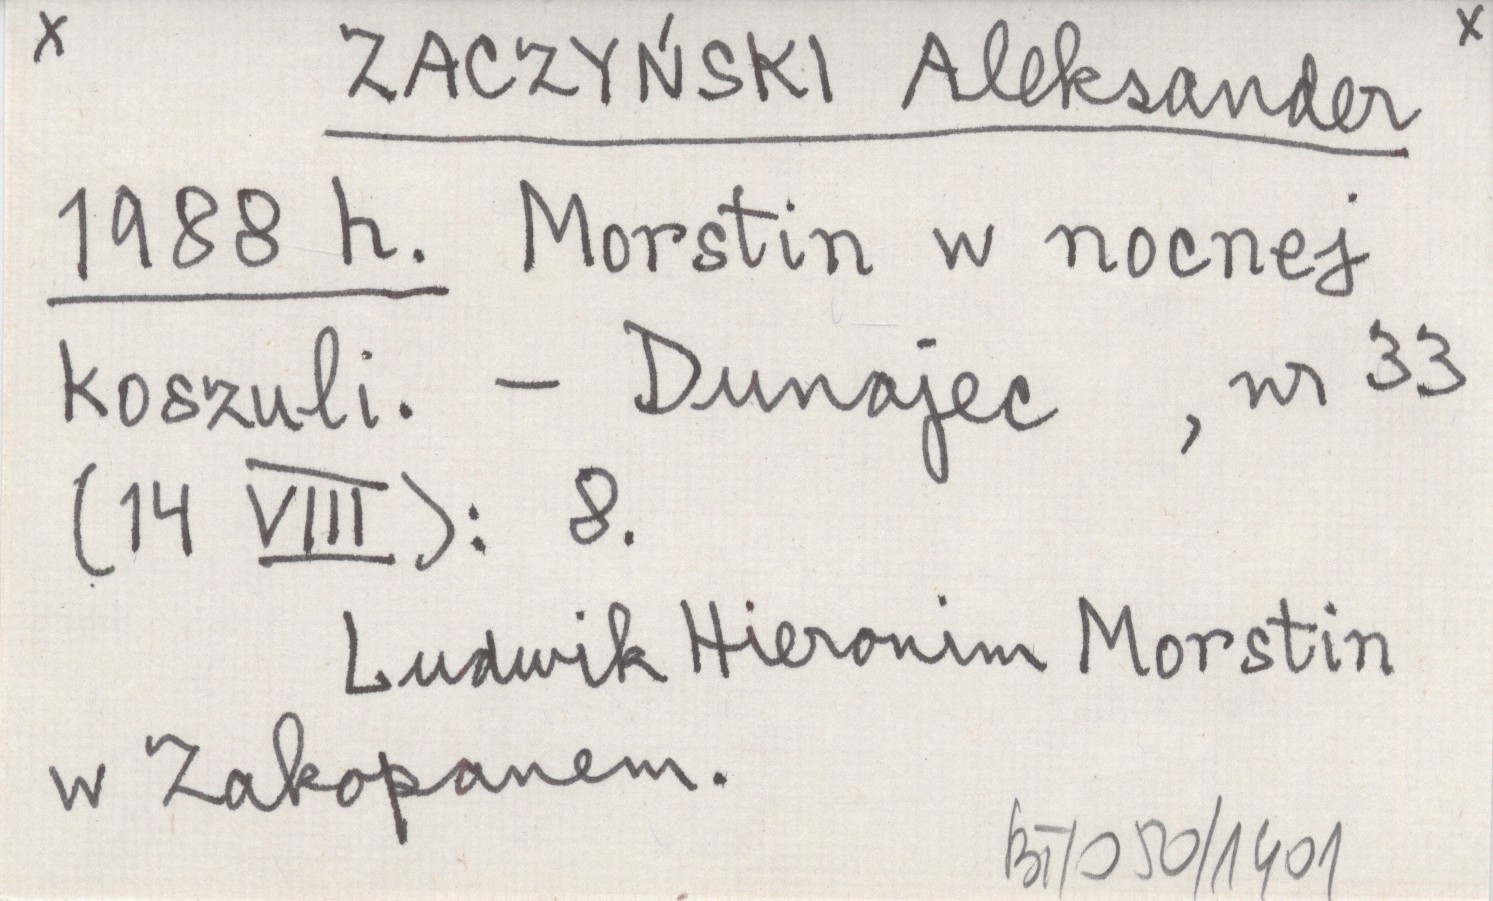 x ZACZYŃSKI Aleksander x
1988 h. Morstin w nocnej
koszuli. – Dunajec , nr 33
(14 VIII): 8.
Ludwik Hieronim Morstin
w Zakopanem.
BT/050/1401